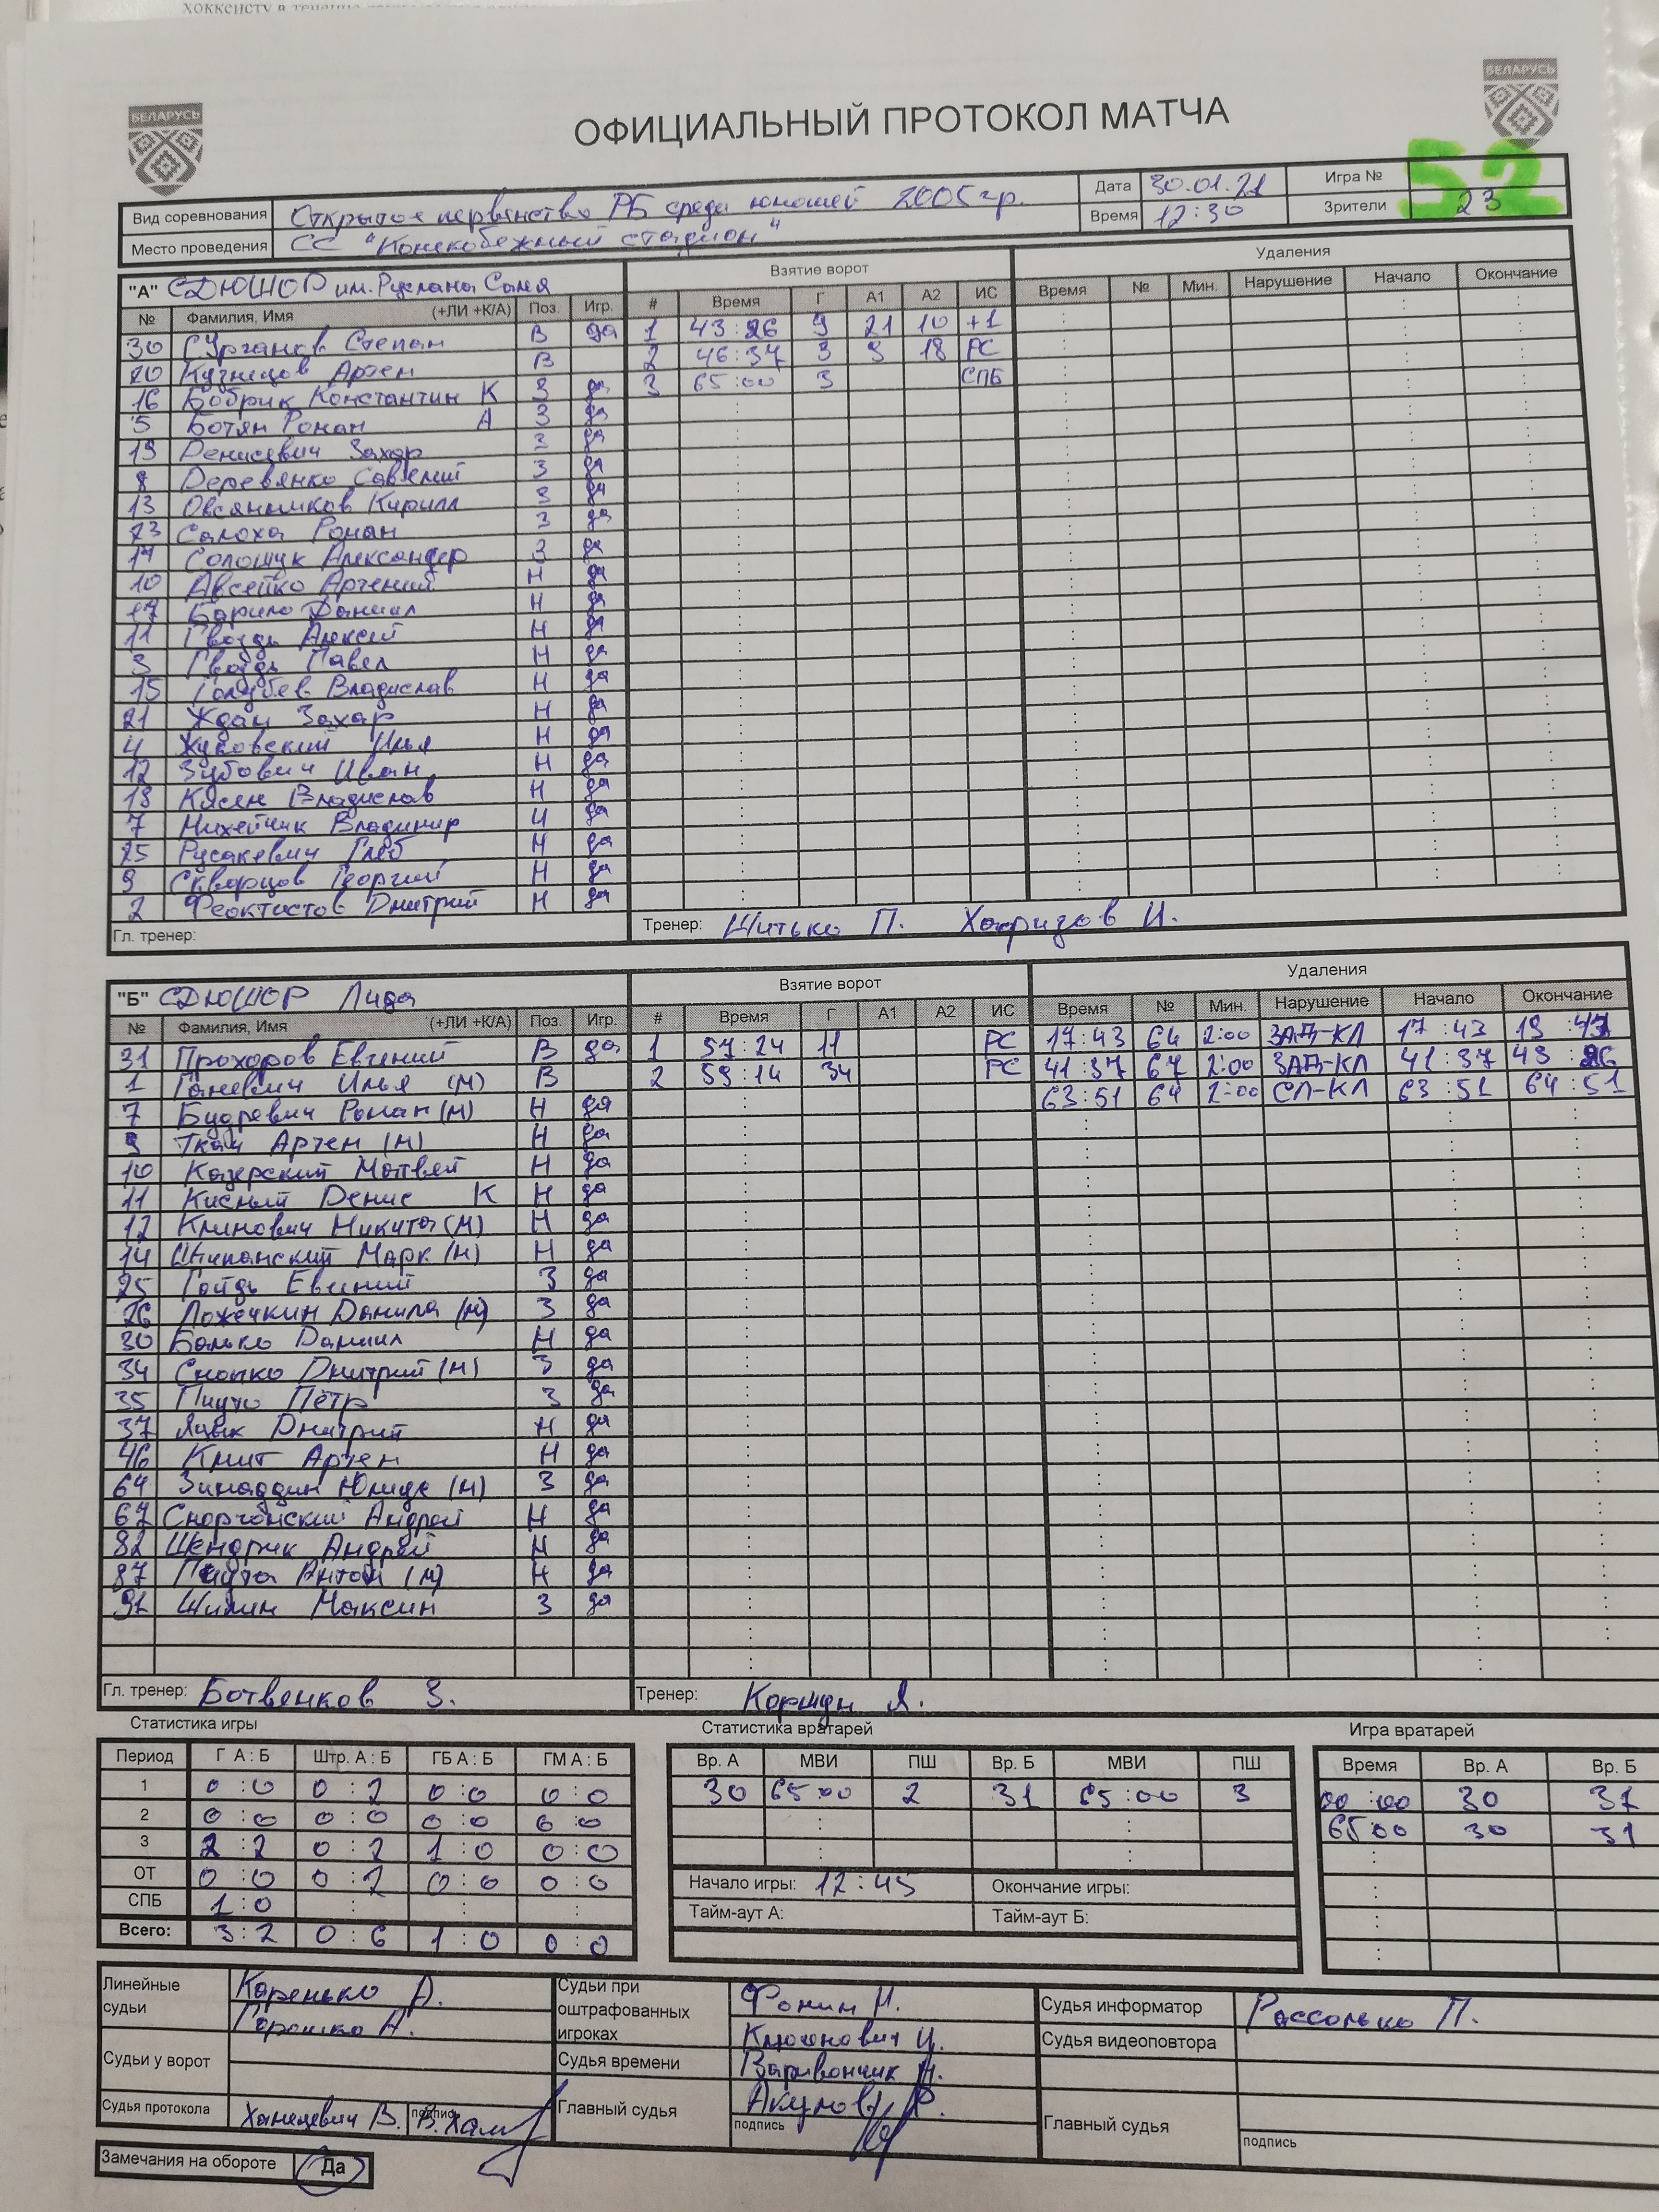 БЕЛАРУСЬ
БЕЛАРУСЬ
ОФИЦИАЛЬНЫЙ ПРОТОКОЛ МАТЧА
52
Вид соревнования Открытое первенство РБ среди юношей 2005 гр. Дата 30.01.21 Игра №
Место проведения СС "Конькобежный стадион" Время 12:30 Зрители 23
"А" СДЮШОР им. Руслана Салея Взятие ворот Удаления
№ Фамилия, Имя (+ЛИ +К/А) Поз. Игр. # Время Г А1 А2 ИС Время № Мин. Нарушение Начало Окончание
30 Сурганов Степан В да 1 43:26 9 21 10 +1
20 Кузнецов Артем В 2 46:37 3 9 18 РС
16 Бобрик Константин К З да 3 65:00 3 СПБ
5 Ботян Роман А З да
19 Денисевич Захар З да
8 Деревянко Савелий З да
13 Овсянников Кирилл З да
23 Салоха Роман З да
Солощук Александр З да
10 Авсейко Арсений Н да
17 Барило Даниил Н да
11 Гвоздь Алексей Н да
3 Гвоздь Павел Н да
15 Голубев Владислав Н да
21 Ждан Захар Н да
4 Жуковский Илья Н да
12 Зубович Иван Н да
18 Владислав Н да
7 Михейчик Владимир Н да
25 Русакевич Глеб Н да
9 Скворцов Георгий Н да
2 Феоктистов Дмитрий Н да
Гл. тренер: Тренер: Шитько П. Хафизов И.
"Б" СДЮШОР Лида Взятие ворот Удаления
№ Фамилия, Имя (+ЛИ +К/А) Поз. Игр. # Время Г А1 А2 ИС Время № Мин. Нарушение Начало Окончание
31 Прохоров Евгений В да 1 57:24 11 РС 17:43 64 2:00 ЗАД-КЛ 17:43 19:43
1 Ганевич Илья (М) В 2 59:14 34 РС 41:37 67 2:00 ЗАД-КЛ 41:37 43:26
7 Будревич Роман (М) Н да 63:51 64 2:00 СЛ-КЛ 63:51 64:51
9 Ткач Артем (М) Н да
10 Казерский Матвей Н да
11 Кислый Денис К Н да
12 Климович Никита (М) Н да
14 Марк (М) Н да
25 Гайдь Евгений З да
26 Ложечкин Данила (М) З да
30 Банько Даниил Н да
34 Снопко Дмитрий (М) З да
35 Пицуто Пётр З да
37 Дмитрий Н да
46 Кмит Артем Н да
64 Зинаддин (М) З да
67 Сморгонский Андрей Н да
82 Шендрик Андрей Н да
87 Антон (М) Н да
91 Шилин Максим З да
Гл. тренер: Ботвенков З. Тренер: Коршун А.
Статистика игры Статистика вратарей Игра вратарей
Период Г А : Б Штр. А : Б ГБ А : Б ГМ А : Б Вр. А МВИ ПШ Вр. Б МВИ ПШ Время Вр. А Вр. Б
1 0:0 0:2 0:0 0:0 30 65:00 2 31 65:00 3 00:00 30 31
2 0:0 0:0 0:0 0:0 65:00 30 31
3 2:2 0:2 1:0 0:0
ОТ 0:0 0:2 0:0 0:0 Начало игры: 12:45 Окончание игры:
СПБ 1:0 Тайм-аут А: Тайм-аут Б:
Всего: 3:2 0:6 1:0 0:0
Линейные судьи Каренько А. Герашко А.
Судьи при оштрафованных игроках Фонин Н. Клюжнович И.
Судья информатор Рассолько П.
Судья видеоповтора
Судьи у ворот Судья времени Варивончик А.
Судья протокола Ханцевич В. подпись В.Хан
Главный судья Акулов Р. подпись
Главный судья подпись
Замечания на обороте Да